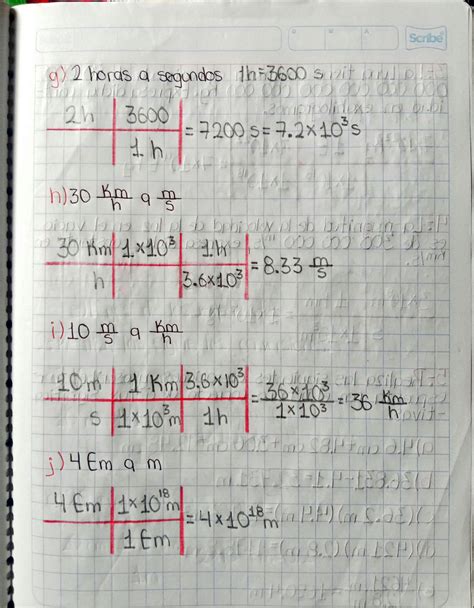 Scribe
g) 2 horas a segundos 1h=3600 s
2h | 3600 / 1 h = 7200 s = 7.2×10³ s
h) 30 Km/h a m/s
30 Km / h | 1×10³ | 1h / 3.6×10³ = 8.33 m/s
i) 10 m/s a Km/h
10 m / s | 1 Km / 1×10³ m | 3.6×10³ / 1h = 36×10³ / 1×10³ = 36 Km/h
j) 4 Em a m
4 Em | 1×10¹⁸ m / 1 Em = 4×10¹⁸ m